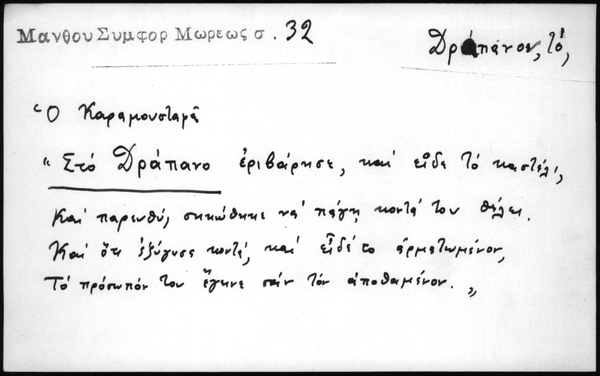 Μανθου Συμφορ Μωρεως σ. 32
Δράπανον, τό,
Ὁ Καραμουσταφᾶ
„Στό Δράπανο ἐριβάρησε, καί εἶδε τό καστέλι,
Καί παρευθύ, σηκώθηκε νά πάγῃ κοντά του θέλει.
Καί ὅτι ἐξύγωσε κοντά, καί εἶδέ το ἁρματωμένον,
Τό πρόσωπόν του ἔγινε σάν τόν ἀποθαμένον. „